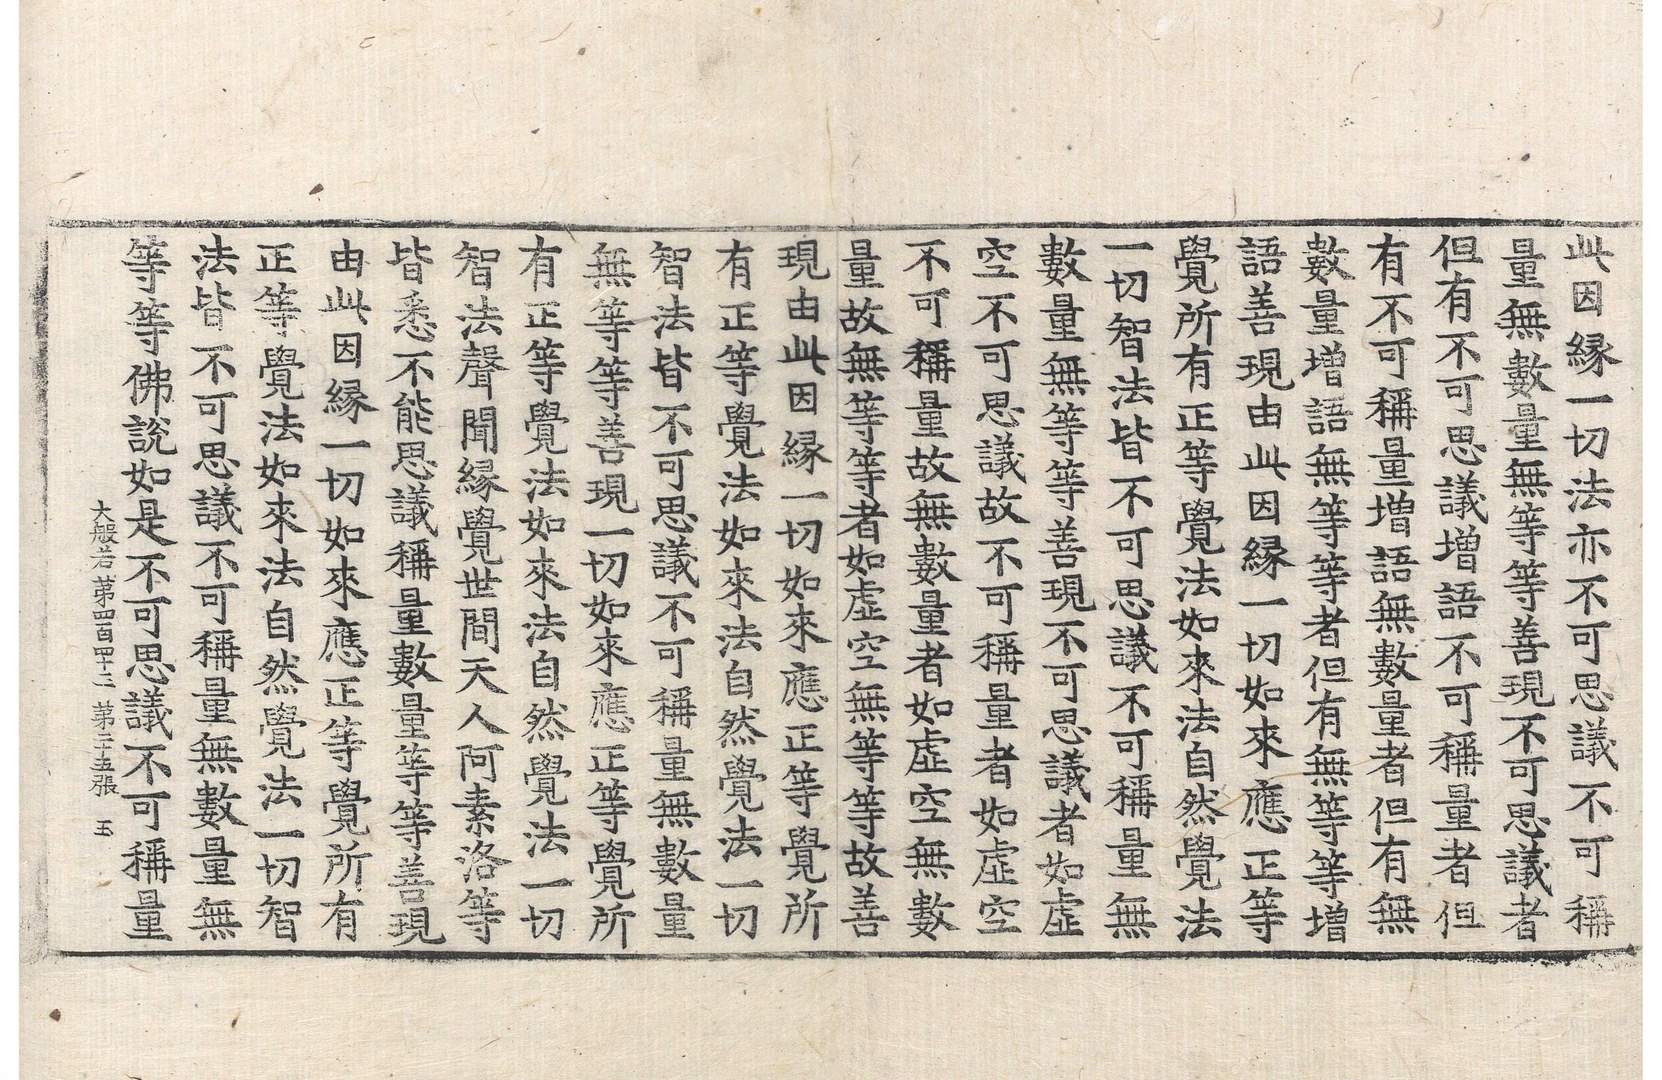 此因緣一切法亦不可思議不可稱
量無數量無等等善現不可思議者
但有不可思議增語不可稱量者但
有不可稱量增語無數量者但有無
數量增語無等等者但有無等等增
語善現由此因緣一切如來應正等
覺所有正等覺法如來法自然覺法
一切智法皆不可思議不可稱量無
數量無等等善現不可思議者如虛
空不可思議故不可稱量者如虛空
不可稱量故無數量者如虛空無數
量故無等等者如虛空無等等故善
現由此因緣一切如來應正等覺所
有正等覺法如來法自然覺法一切
智法皆不可思議不可稱量無數量
無等等善現一切如來應正等覺所
有正等覺法如來法自然覺法一切
智法聲聞緣覺世間天人阿素洛等
皆悉不能思議稱量數量等等善現
由此因緣一切如來應正等覺所有
正等覺法如來法自然覺法一切智
法皆不可思議不可稱量無數量無
等等佛說如是不可思議不可稱量
大般若第四百四十二 第二十五張 玉